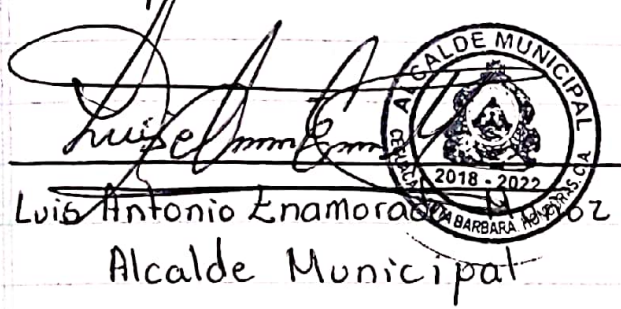 ALCALDE MUNICIPAL
2018 - 2022
BARBARA HONDURAS. C.A.
Luis Antonio Enamorado
Alcalde Municipal